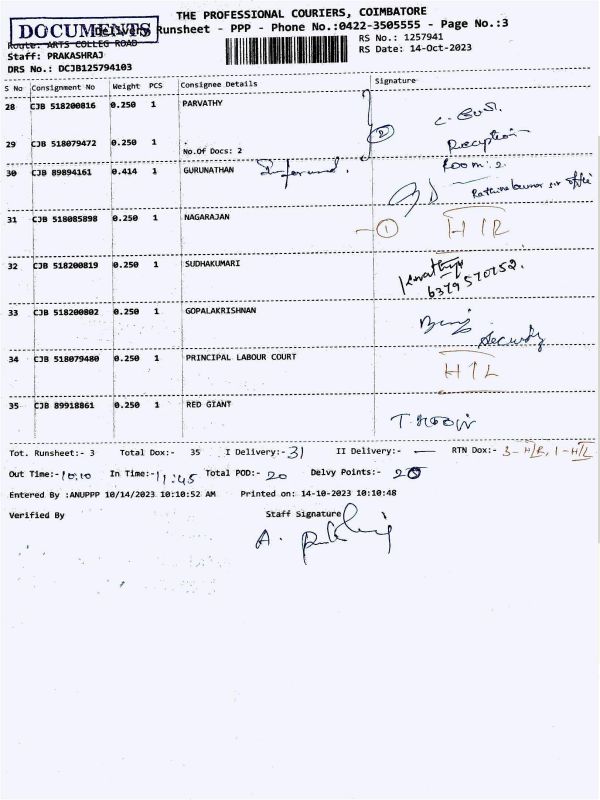 THE PROFESSIONAL COURIERS, COIMBATORE
DOCUMENTS Delivery Runsheet - PPP - Phone No.:0422-3505555 - Page No.:3
Route: ARTS COLLEG ROAD
RS No.: 1257941
Staff: PRAKASHRAJ
RS Date: 14-Oct-2023
DRS No.: DCJB125794103
S No Consignment No Weight PCS Consignee Details Signature
28 CJB 518200816 0.250 1 PARVATHY
29 CJB 518079472 0.250 1 .
No.Of Docs: 2
2
Reception
30 CJB 89894161 0.414 1 GURUNATHAN Informed. Room: 2
31 CJB 518085898 0.250 1 NAGARAJAN 1 H/R
32 CJB 518200819 0.250 1 SUDHAKUMARI
6379570752.
33 CJB 518200802 0.250 1 GOPALAKRISHNAN
Security
34 CJB 518079480 0.250 1 PRINCIPAL LABOUR COURT H/L
35 CJB 89918861 0.250 1 RED GIANT
Tot. Runsheet:- 3 Total Dox:- 35 I Delivery:- 31 II Delivery:- — RTN Dox:- 3 - H/R, 1 - H/L
Out Time:- 10:10 In Time:- 11:45 Total POD:- 20 Delvy Points:- 20
Entered By :ANUPPP 10/14/2023 10:10:52 AM Printed on: 14-10-2023 10:10:48
Verified By Staff Signature
A.